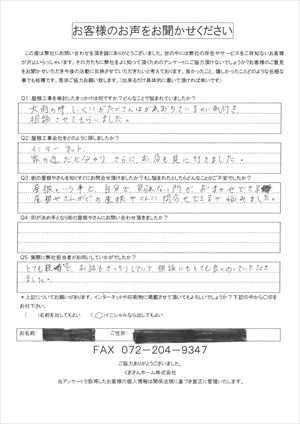 お客様のお声をお聞かせください
この度は弊社にお問い合わせを頂き誠にありがとうございました。世の中には弊社の存在やサービスをご存知ないお客様
が沢山いらっしゃいます。その方たちに弊社をよく知って頂くためのアンケートにご協力頂けないでしょうか?お客様のご意見
をお聞かせいただき今後の活動に反映させていただきたいと考えております。良かったこと、嬉しかったことのような些細な
事でも結構です。是非ご協力お願い致します。(出来るだけ具体的に書いて頂ければ幸いです)
Q1:屋根工事を検討したきっかけは何ですか?どんなことで悩まれていましたか?
大雨の時、しっくいがたくさんはがれおちているのに気付き、
相談させてもらいました。
Q2:屋根工事会社をどのように探しましたか?
インターネット
家の近だと分かり、さらに、お店も見に行きました。
Q3:街の屋根やさんを知りすぐにお問合せ頂けましたか?もし悩まれたとしたらどんなことがご不安でしたか?
屋根という事で、自分で見れない所が、おまかせできる
屋根やさんがどの屋根やさんに問合せできるか悩みました。
Q4:何が決め手となり街の屋根やさんにお問い合わせ頂きましたか?
Q5:実際に弊社担当者がお伺いしていかがでしたか?
とても親切で、お話もきっちりしていて相談にもとても良くのっていただき
ました。
*上記についてお願いがあります。インターネットや印刷物に掲載させて頂いてもよろしいでしょうか?下記の中から○印を
お付け下さい。
( )名前を出してもよい (○)イニシャルなら出してもよい
お名前: ご住所:
FAX 072-204-9347
ご協力ありがとうございました。
くまさんホーム株式会社
当アンケートで取得したお客様の個人情報は関係法規に基づき厳正に管理いたします。